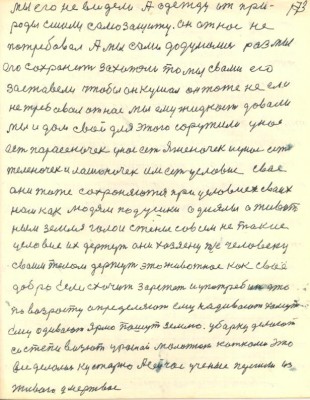 173
мы его не видели А одежду от при-
роды сшили самозащиту. он от нас не
потребовал А мы сами додумались раз мы
его сохранит захотели то мы с вами его
заставели чтобы он кушал он тоже не ели
не требовал от нас мы ему жидкост довали
мы и дом свой для этого сорудили у нас
ест парасеночек у нас ест Ягненочек и у нас ест
теленочек и лашоночек им ест условие свае
они тоже сохроняются при условиях сваих
нам как людям подушки одеялы а живот-
ным земля голои стены совсем не такие
условие их держут они хозяену т/е человеку
сваим телом держут это животное как своё
добро Если схочит зарежет и употребит это
по возрасту определяют ему надивают хомут
ему одивают Ярмо пашут землю. убарку делают
со степи визют урожай молотют катком это
вы делалы кустарно А сичас ученые пришли из
живого в мертвое